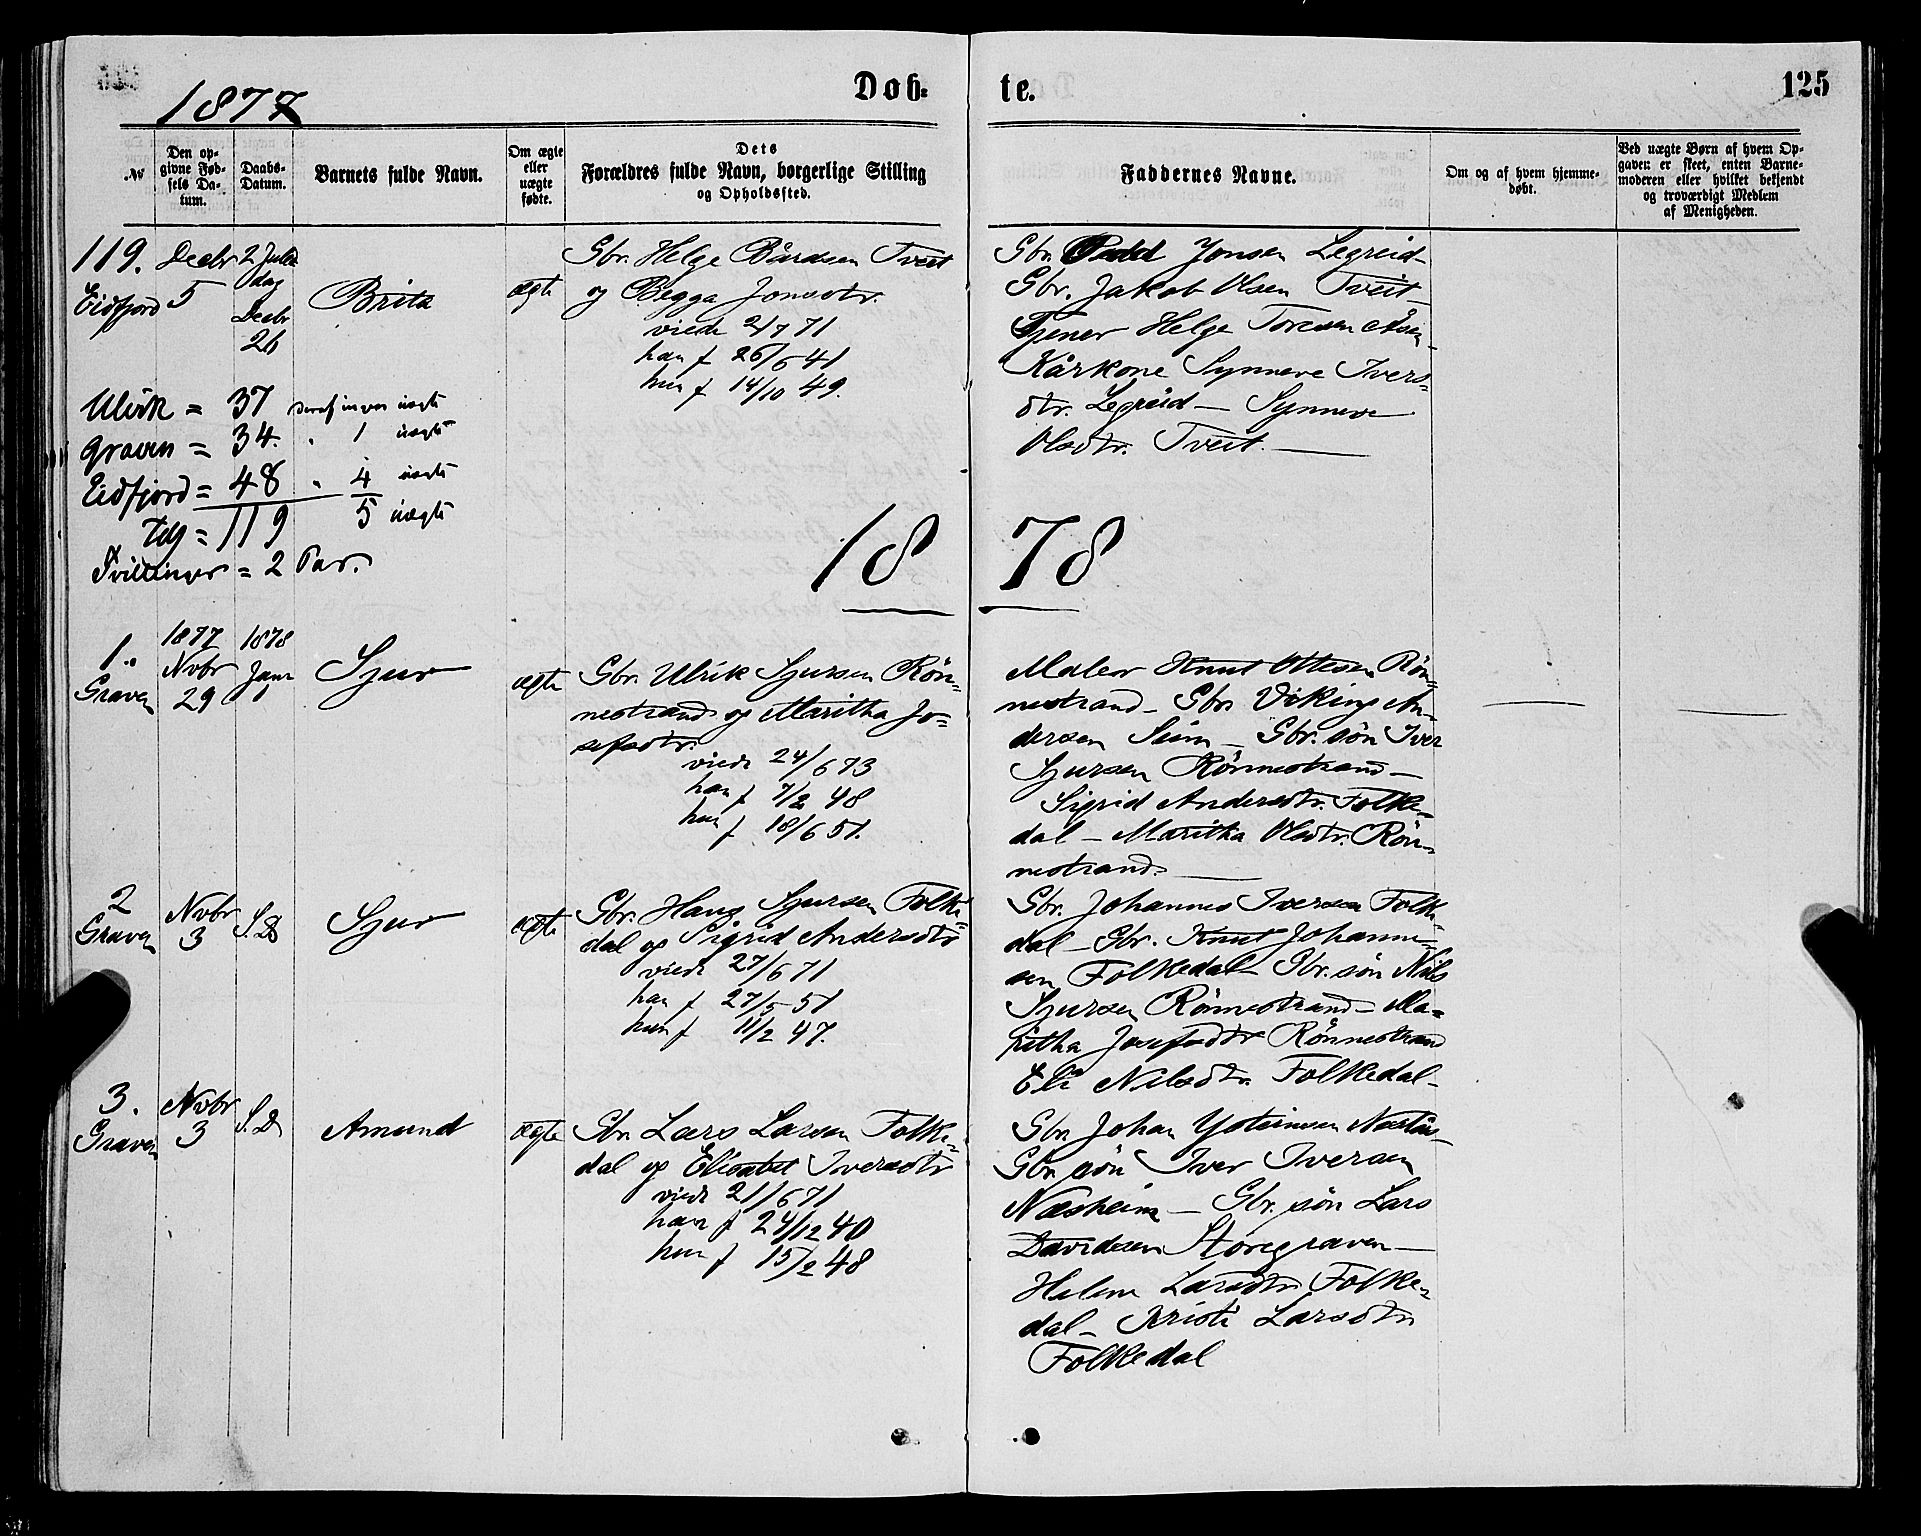 1877
Døb-
te.
125
№
Den op-
givne Fød-
sels Da-
tum.
Daabs-
Datum.
Barnets fulde Navn.
Om ægte
eller
uægte
fødte.
Dets
Forældres fulde Navn, borgerlige Stilling
og Opholdssted.
Faddernes Navne.
Om og af hvem hjemme-
døbt.
Ved uægte Børn af hvem Op-
gaven er skeet, enten Barne-
moderen eller hvilket bekjendt
og troværdigt Medlem
af Menigheden.
119.
Eidfjord
Decbr
5
2 Jule
dag
Decbr
26
Brita
ægte
Gbr. Helge Bårdsen Tveit
og Begga Jonsdtr.
viede 2/7 71
han f 26/6 41
hun f 14/10 49.
Gbr. Jonsen Legreid
Gbr. Jakob Olsen Tveit
Tjener Helge Toresen
Kårkone Synneve Ivers-
dtr. Legreid — Synneve
Olsdtr. Tveit.
Ulvik = 37 deraf ingen uægte
Graven = 34. " 1 uægte
Eidfjord = 48 " 4 uægte
Tils = 119 5 uægte
Tvillinger = 2 Par.
18 78
1.
Graven
1877
Novbr
29
1878
Janr
1
Sjur
ægte
Gbr. Ulrik Sjursen Rön-
nestrand og Maritha Jo-
sefsdtr.
viede 24/6 73
han f 7/2 48
hun f 18/6 51.
Maler Knut Ottesen Rön-
nestrand — Gbr. Viking An-
dersen Seim — Gbr. sön Iver
Sjursen Rönnestrand —
Sigrid Andersdtr. Folke-
dal — Maritha Olsdtr. Rön-
nestrand.
2
Graven
Novbr
3
S. D
Sjur
ægte
Gbr. Haug Sjursen Folke-
dal og Sigrid Andersdtr
viede 27/6 71
han f 27/5 51
hun f 11/2 47.
Gbr. Johannes Iversen Folke-
dal — Gbr. Knut Johanne-
sen Folkedal — Gbr. sön Nils
Sjursen Rönnestrand — Ma-
ritha Josefsdtr Rönnestrand
Eli Nilsdtr. Folkedal —
3.
Graven
Novbr
3
S. D
Amund
ægte
Gbr. Lars Larsen Folke-
dal og Elisabet Iversdtr
viede 21/6 71
han f 24/12 40
hun f 15/2 48
Gbr. Johan Ysteinsen
Gbr. sön Iver Iversen
Næsheim — Gbr. sön Lars
Davidsen Storegraven —
Helene Larsdtr Folke-
dal — Kristi Larsdtr
Folkedal